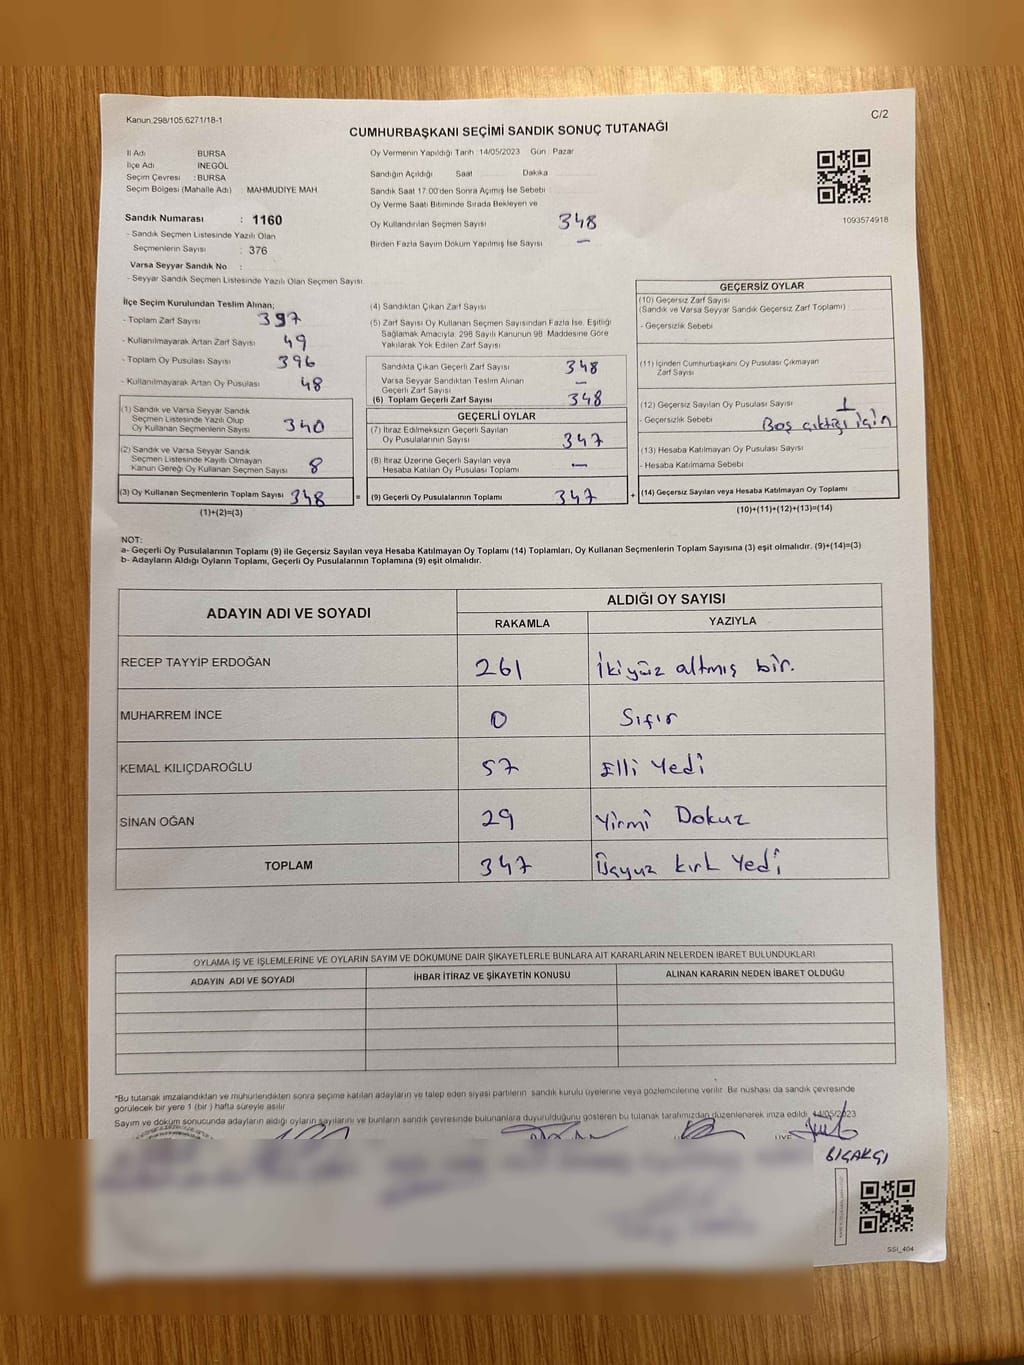 Kanun.298/105.6271/18-1
C/2
CUMHURBAŞKANI SEÇİMİ SANDIK SONUÇ TUTANAĞI
İl Adı BURSA
İlçe Adı İNEGÖL
Seçim Çevresi : BURSA
Seçim Bölgesi (Mahalle Adı) : MAHMUDİYE MAH
Sandık Numarası : 1160
- Sandık Seçmen Listesinde Yazılı Olan
Seçmenlerin Sayısı : 376
Varsa Seyyar Sandık No :
- Seyyar Sandık Seçmen Listesinde Yazılı Olan Seçmen Sayısı
Oy Vermenin Yapıldığı Tarih 14/05/2023 Gün : Pazar
Sandığın Açıldığı Saat Dakika
Sandık Saat 17:00'den Sonra Açılmış İse Sebebi
Oy Verme Saati Bitiminde Sırada Bekleyen ve
Oy Kullandırılan Seçmen Sayısı 348
Birden Fazla Sayım Döküm Yapılmış İse Sayısı —
1093574918
İlçe Seçim Kurulundan Teslim Alınan;
- Toplam Zarf Sayısı 397
- Kullanılmayarak Artan Zarf Sayısı 49
- Toplam Oy Pusulası Sayısı 396
- Kullanılmayarak Artan Oy Pusulası 48
(1) Sandık ve Varsa Seyyar Sandık
Seçmen Listesinde Yazılı Olup
Oy Kullanan Seçmenlerin Sayısı 340
(2) Sandık ve Varsa Seyyar Sandık
Seçmen Listesinde Kayıtlı Olmayan
Kanun Gereği Oy Kullanan Seçmen Sayısı 8
(3) Oy Kullanan Seçmenlerin Toplam Sayısı 348
(1)+(2)=(3)
(4) Sandıktan Çıkan Zarf Sayısı
(5) Zarf Sayısı Oy Kullanan Seçmen Sayısından Fazla İse, Eşitliği
Sağlamak Amacıyla, 298 Sayılı Kanunun 98. Maddesine Göre
Yakılarak Yok Edilen Zarf Sayısı
Sandıkta Çıkan Geçerli Zarf Sayısı 348
Varsa Seyyar Sandıktan Teslim Alınan
Geçerli Zarf Sayısı —
(6) Toplam Geçerli Zarf Sayısı 348
GEÇERLİ OYLAR
(7) İtiraz Edilmeksizin Geçerli Sayılan
Oy Pusulalarının Sayısı 347
(8) İtiraz Üzerine Geçerli Sayılan veya
Hesaba Katılan Oy Pusulası Toplamı —
= (9) Geçerli Oy Pusulalarının Toplamı 347
GEÇERSİZ OYLAR
(10) Geçersiz Zarf Sayısı
(Sandık ve Varsa Seyyar Sandık Geçersiz Zarf Toplamı)
- Geçersizlik Sebebi
(11) İçinden Cumhurbaşkanı Oy Pusulası Çıkmayan
Zarf Sayısı
(12) Geçersiz Sayılan Oy Pusulası Sayısı 1
- Geçersizlik Sebebi Boş çıktığı için
(13) Hesaba Katılmayan Oy Pusulası Sayısı
- Hesaba Katılmama Sebebi
+ (14) Geçersiz Sayılan veya Hesaba Katılmayan Oy Toplamı
(10)+(11)+(12)+(13)=(14)
NOT:
a- Geçerli Oy Pusulalarının Toplamı (9) ile Geçersiz Sayılan veya Hesaba Katılmayan Oy Toplamı (14) Toplamları, Oy Kullanan Seçmenlerin Toplam Sayısına (3) eşit olmalıdır. (9)+(14)=(3)
b- Adayların Aldığı Oyların Toplamı, Geçerli Oy Pusulalarının Toplamına (9) eşit olmalıdır.
ADAYIN ADI VE SOYADI ALDIĞI OY SAYISI
RAKAMLA YAZIYLA
RECEP TAYYİP ERDOĞAN 261 İkiyüz altmış bir.
MUHARREM İNCE 0 Sıfır
KEMAL KILIÇDAROĞLU 57 Elli Yedi
SİNAN OĞAN 29 Yirmi Dokuz
TOPLAM 347 Üçyüz kırk Yedi
OYLAMA İŞ VE İŞLEMLERİNE VE OYLARIN SAYIM VE DÖKÜMÜNE DAİR ŞİKAYETLERLE BUNLARA AİT KARARLARIN NELERDEN İBARET BULUNDUKLARI
ADAYIN ADI VE SOYADI İHBAR İTİRAZ VE ŞİKAYETİN KONUSU ALINAN KARARIN NEDEN İBARET OLDUĞU
*Bu tutanak imzalandıktan ve mühürlendikten sonra seçime katılan adayların ve talep eden siyasi partilerin sandık kurulu üyelerine veya gözlemcilerine verilir. Bir nüshası da sandık çevresinde
görülecek bir yere 1 (bir) hafta süreyle asılır
Sayım ve döküm sonucunda adayların aldığı oyların sayılarını ve bunların sandık çevresinde bulunanlara duyurulduğunu gösteren bu tutanak tarafımızdan düzenlenerek imza edildi. 14/05/2023
BIÇAKÇI
SSI_404